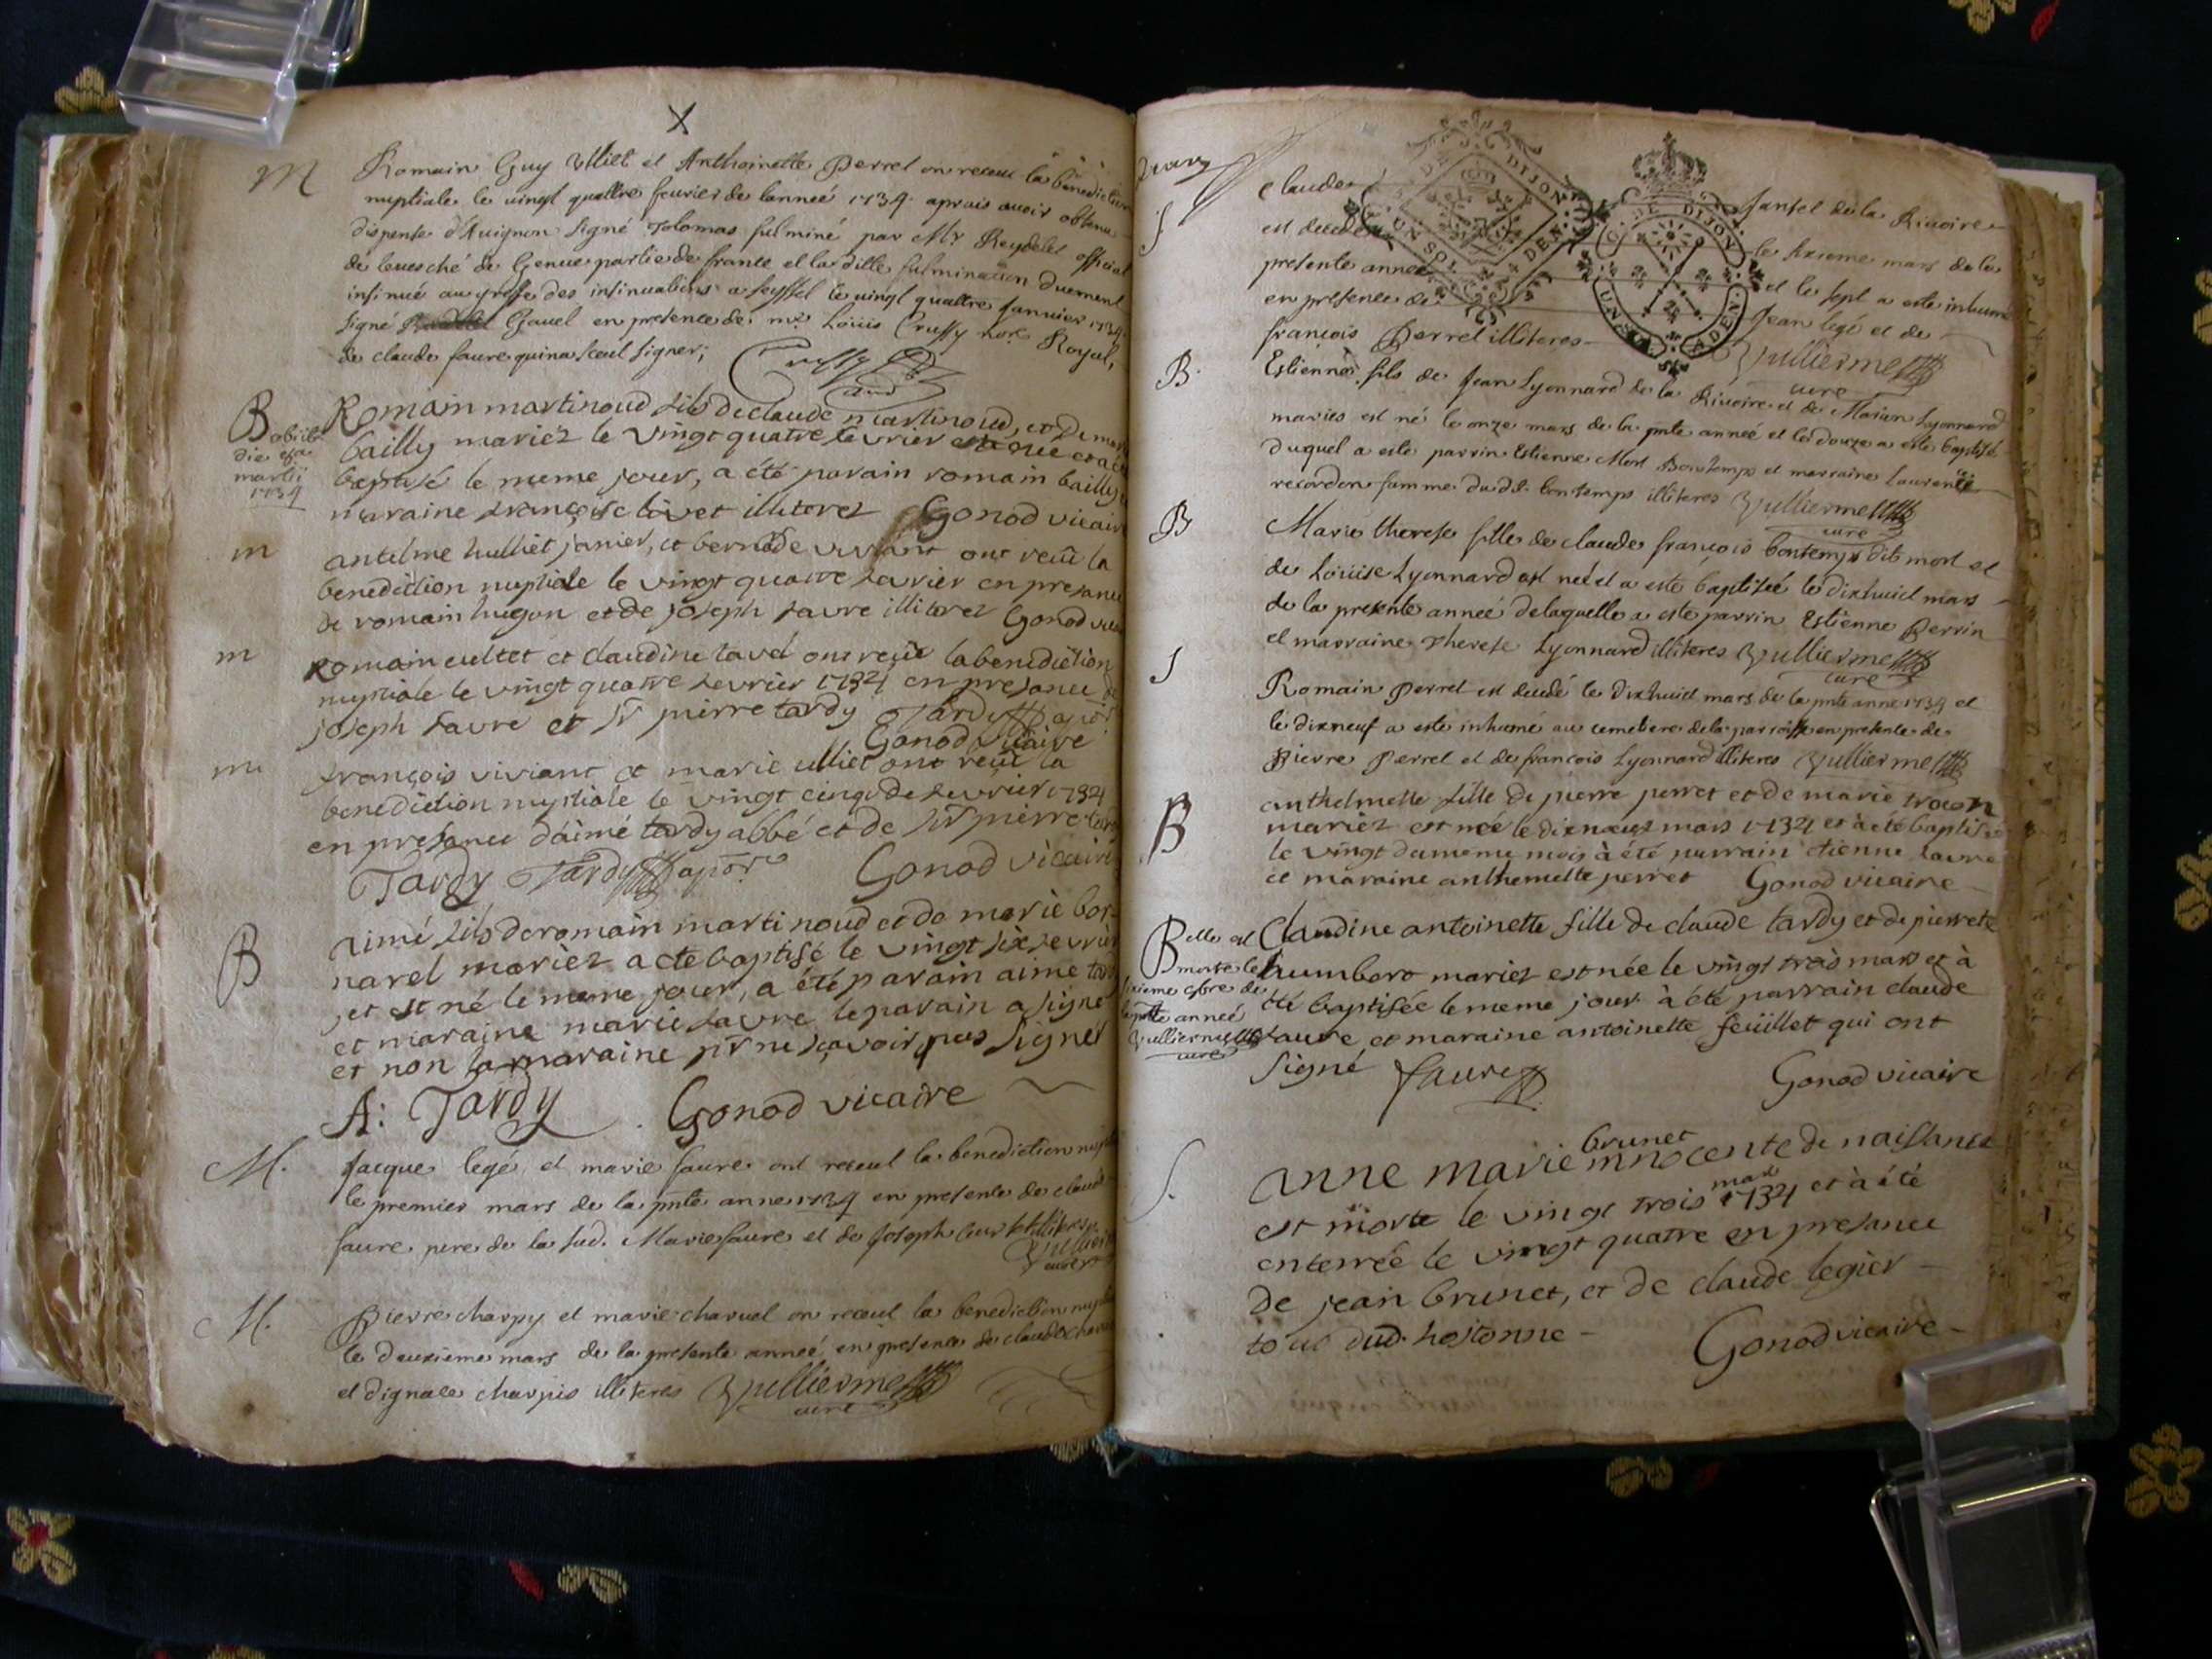 X
M
Romain Guy Ulliet et Anthoinette Perret on receu la benediction
nuptiale le vingt quattre fevrier de lanneé 1734 aprais avoir obtenu
dispense d'Avignon signé Tolomas fulminé par Mr Reydelet official
de levesché de Geneve partie de france et la ditte fulmination duement
insinué au greffe des insinuations a seyssel le vingt quattre janvier 1734
signé Gavel en presence de mr Loüis Cruffy nore Royal,
de claude faure qui na sceut signer;
B
obiit
die
martii
1734
Romain martinoud fils de claude martinoud, et de
bailly mariez le vingt quatre fevrier est né et a
baptisé le meme jour, a été parain romain bailly
maraine françoise livet illiterez Gonod vicaire
m
antelme hulliet janier, et bernade vivïant ont reçû la
benediction nuptiale le vingt quatre fevrier en presance
de romain hugon et de joseph favre illiterez Gonod
m
Romain cultet et claudine tavel ont reçûe la benediction
nuptiale le vingt quatre fevrier 1734 en presance de
joseph favre et Sr pierre tardy Tardy
Gonod Vicaire
m
françois viviant et marie ulliet ont reçû la
benediction nuptiale le vingt cinq de fevrier 1734
en presance d'aimé tardy abbé et de Sr pierre
Tardy Tardy Gonod vicaire
B
aimé fils de romain martinoud et de marie bor-
narel mariez a eté baptisé le vingt six fevrier
et est né le meme jour, a été parain aime
et maraine marie favre le parain a signé
et non la maraine pr ne sçavoir pas signer
A: Tardy Gonod vicaire
M.
Jacque legé et marie faure ont receut la benediction
le premier mars de la pnte anneé 1734 en presence de claude
faure pere de la sud. Marie faure et de Joseph
M.
Pierre charpy et marie charvet on receut la benediction
le deuxieme mars de la presente anneé en presence de claude
et dignace charpis illiteres Vullierme
curé
S
claude Jantet de la Rivoire
est decedé le sixieme mars de la
presente anneé et le sept a esté inhumé
en presence de Jean legé et de
françois Perret illiteres Vullierme
curé
DE DIJON
UN SOL 4 DEN.
G. DE DIJON
UN SOL 4 DEN.
B.
Estienne fils de Jean Lyonnard de la Rivoire et de Marion Lyonnard
mariés est né le onze mars de la pnte anneé et le douze a esté baptisé
duquel a este parrin Estienne Mort Bontemps et marraine Laurence
recordon famme du dt. bontemps illiteres Vullierme
curé
B
Marie therese fille de claude françois bontemps dit mort et
de Loüise Lyonnard est neé et a este baptiseé le dixhuict mars
de la presente anneé de laquelle a este parrin Estienne Perrin
et marraine Therese Lyonnard illiteres Vullierme
curé
S
Romain Perret est decedé le dixhuict mars de la pnte anne 1734 et
le dixneuf a este inhumé au cemetiere de la parroisse en presence de
Pierre Perret et de francois Lyonnard illiteres Vullierme
B
anthelmette fille de pierre perret et de marie
mariez est neé le dixneuf mars 1734 et à eté baptisé
le vingt du meme mois à été parrain etienne favre
et maraine anthemette perret Gonod vicaire
B
elle est
morte le
ixieme 9bre de
la pnte année
Vullierme
curé
Claudine antoinette fille de claude tardy et de pierrete
humbert mariez est née le vingt trois mars et à
été baptisée le meme jour à été parrain claude
faure et maraine antoinette feüillet qui ont
signé faure Gonod vicaire
S.
brunet
anne marie innocente de naissance
mars
est morte le vingt trois 1734 et à été
enterrée le vingt quatre en presance
de jean brunet, et de claude legier
tous dud. hostonne - Gonod vicaire